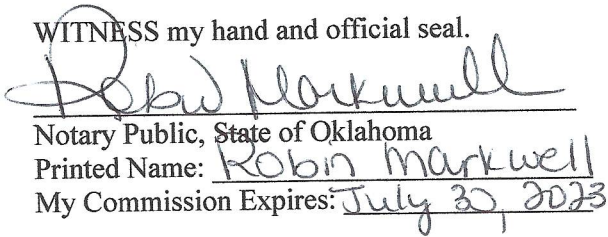 WITNESS my hand and official seal.
Robin Markwell
Notary Public, State of Oklahoma
Printed Name: Robin Markwell
My Commission Expires: July 30, 2023